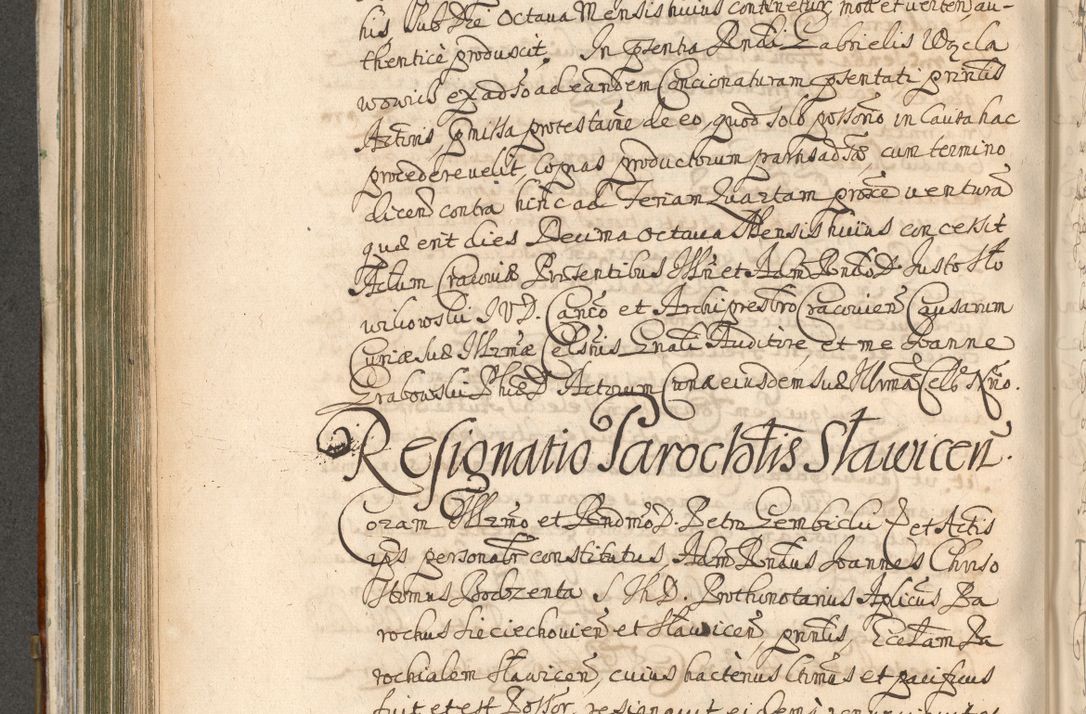 his sub Dte Octaua Mensis huius continetur, mote et uerten, au-
thenticè produscit. In pntia Rndi Gabrielis Węcla
wowicz ex adso ad eandem Concionaturam pntati prntis
Actoris, pmissa protestaoñe de eo, quod solo possorio in Causa hac
procedere uelit, copias productorum parti adsae, cum termino
dicend contra hinc ad Feriam Quartam proxe uenturã
quae erit dies Decima Octaua Mensis huius concessit
Actum Cracouiae Prsentibus Illri et Adm Rndo D Justo Sło
wikowski JVD. Canco et Archipresbro Cracouien Causarum
Curiae Suae Illrmae Celsnis Gnali Auditore, et me Joanne
Grabowski Phiae D Actorum Curiae eiusdem Suae Illrmae Cels Notrio.
Resignatio Parochtis Sławicen.
Coram Illrmo et Rndmo D. Petro Gembicki et Actis
ips personalr constitutus, Adm Rndus Joannes Chriso
stomus Bodzenta S Th D. Prothonotarius Aplicus Pa
rochus Sieciechouien et Sławicen, prntis, Eccłam Pa
rochialem Sławicen, cuius hactenus Ltimus et pacificus
fuit et est Possor, resignauit